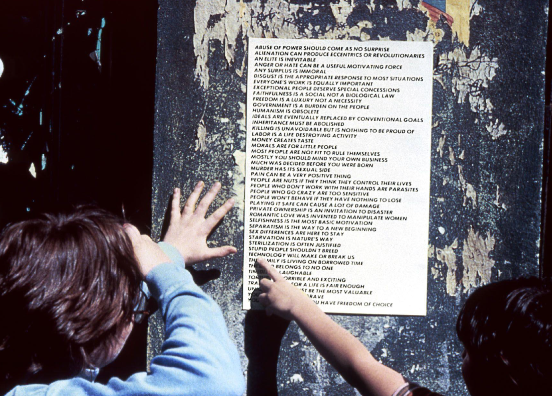 ABUSE OF POWER SHOULD COME AS NO SURPRISE
ALIENATION CAN PRODUCE ECCENTRICS OR REVOLUTIONARIES
AN ELITE IS INEVITABLE
ANGER OR HATE CAN BE A USEFUL MOTIVATING FORCE
ANY SURPLUS IS IMMORAL
DISGUST IS THE APPROPRIATE RESPONSE TO MOST SITUATIONS
EVERYONE'S WORK IS EQUALLY IMPORTANT
EXCEPTIONAL PEOPLE DESERVE SPECIAL CONCESSIONS
FAITHFULNESS IS A SOCIAL NOT A BIOLOGICAL LAW
FREEDOM IS A LUXURY NOT A NECESSITY
GOVERNMENT IS A BURDEN ON THE PEOPLE
HUMANISM IS OBSOLETE
IDEALS ARE EVENTUALLY REPLACED BY CONVENTIONAL GOALS
INHERITANCE MUST BE ABOLISHED
KILLING IS UNAVOIDABLE BUT IS NOTHING TO BE PROUD OF
LABOR IS A LIFE DESTROYING ACTIVITY
MONEY CREATES TASTE
MORALS ARE FOR LITTLE PEOPLE
MOST PEOPLE ARE NOT FIT TO RULE THEMSELVES
MOSTLY YOU SHOULD MIND YOUR OWN BUSINESS
MUCH WAS DECIDED BEFORE YOU WERE BORN
MURDER HAS ITS SEXUAL SIDE
PAIN CAN BE A VERY POSITIVE THING
PEOPLE ARE NUTS IF THEY THINK THEY CONTROL THEIR LIVES
PEOPLE WHO DON'T WORK WITH THEIR HANDS ARE PARASITES
PEOPLE WHO GO CRAZY ARE TOO SENSITIVE
PEOPLE WON'T BEHAVE IF THEY HAVE NOTHING TO LOSE
PLAYING IT SAFE CAN CAUSE A LOT OF DAMAGE
PRIVATE OWNERSHIP IS AN INVITATION TO DISASTER
ROMANTIC LOVE WAS INVENTED TO MANIPULATE WOMEN
SELFISHNESS IS THE MOST BASIC MOTIVATION
SEPARATISM IS THE WAY TO A NEW BEGINNING
SEX DIFFERENCES ARE HERE TO STAY
STARVATION IS NATURE'S WAY
STERILIZATION IS OFTEN JUSTIFIED
STUPID PEOPLE SHOULDN'T BREED
TECHNOLOGY WILL MAKE OR BREAK US
THE FAMILY IS LIVING ON BORROWED TIME
BELONGS TO NO ONE
LAUGHABLE
HORRIBLE AND EXCITING
FOR A LIFE IS FAIR ENOUGH
BE THE MOST VALUABLE
YOU HAVE FREEDOM OF CHOICE